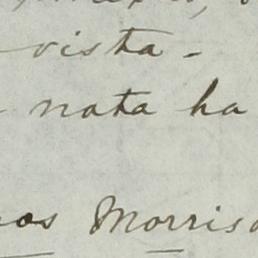 vista -
nata ha
os Morris